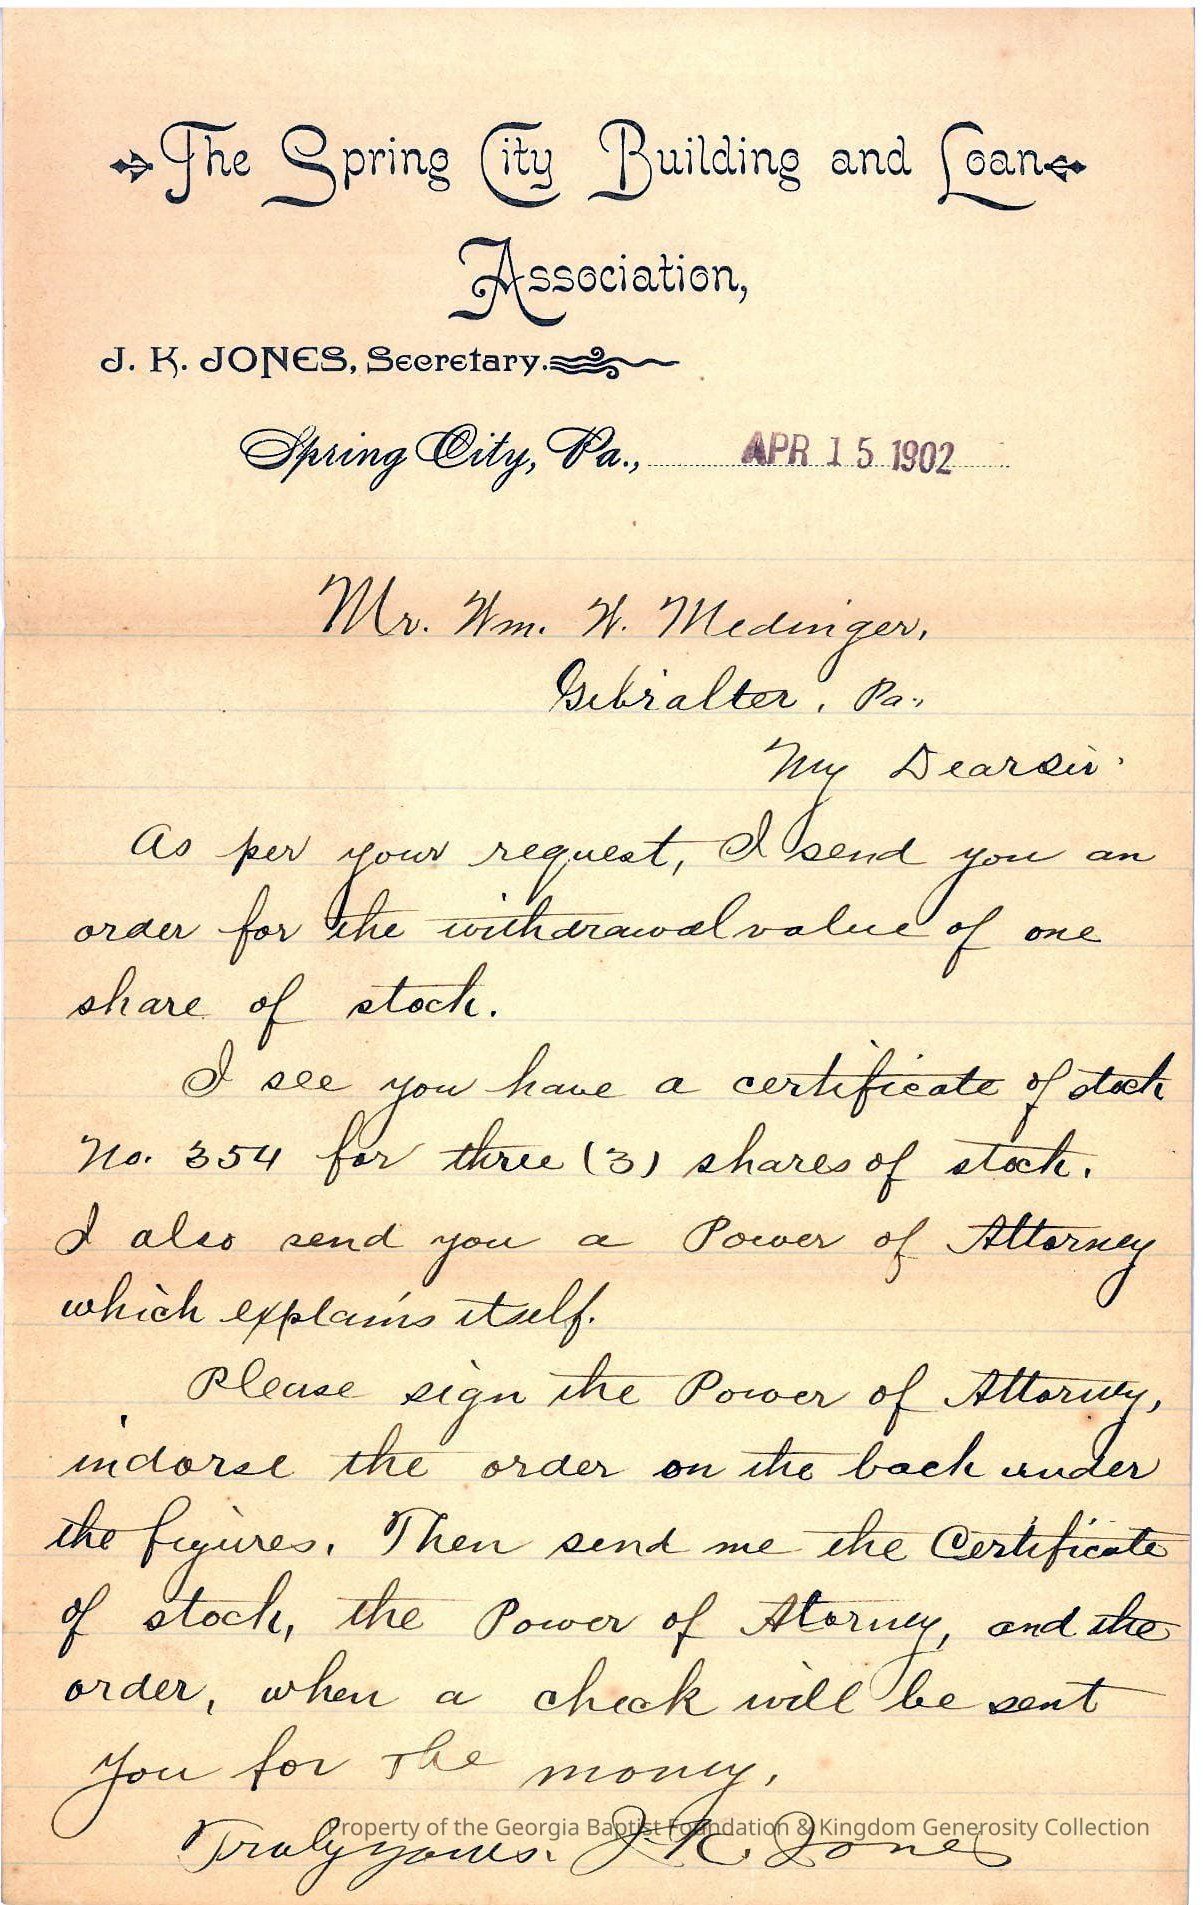 The Spring City Building and Loan
Association,
J. K. JONES, Secretary.
Spring City, Pa., APR 15 1902
Mr. Wm. W. Medinger,
Gibralter, Pa.,
My Dear Sir:
As per your request, I send you an
order for the withdrawal value of one
share of stock.
I see you have a certificate of stock
No. 354 for three (3) shares of stock.
I also send you a Power of Attorney
which explains itself.
Please sign the Power of Attorney,
indorse the order on the back under
the figures. Then send me the Certificate
of stock, the Power of Atorney, and the
order, when a check will be sent
you for the money.
Truly yours. J. K. Jones
Property of the Georgia Baptist Foundation & Kingdom Generosity Collection